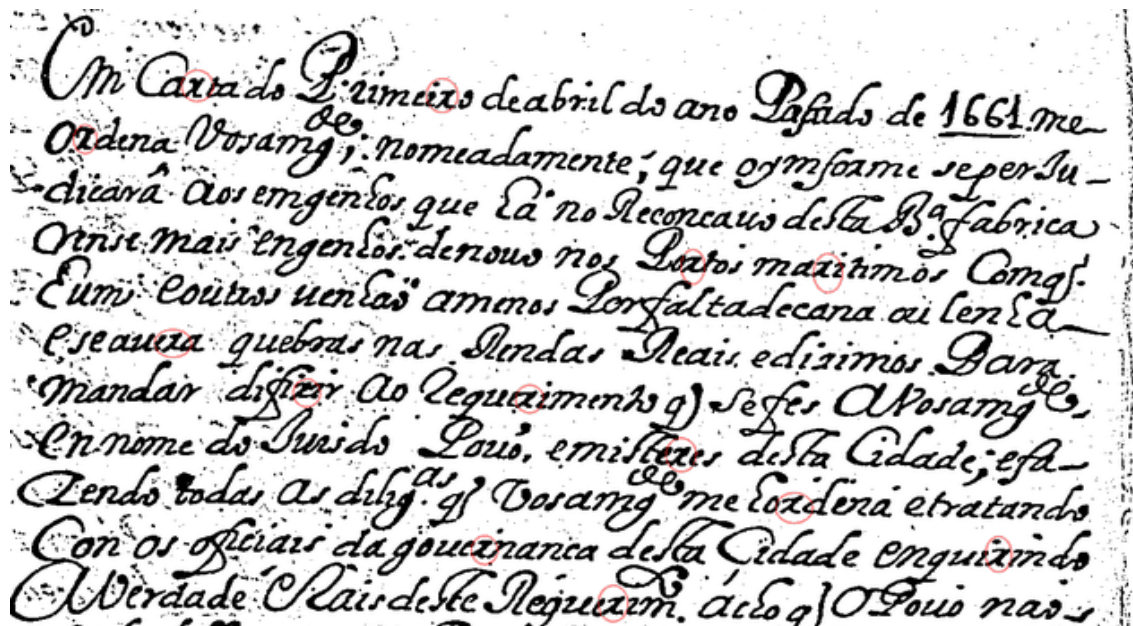 Em Carta do Primeiro de abril do ano Pasado de 1661 me
Ordena Vosamg.de; nomeadamente; que os Informe seperIu-
dicarâ aos emgenhos que ha no Reconcauo desta B.a fabrica
rense mais engenhos. denouo nos Portos maritimos Comq.
hum e outros uenhaõ amenos Por faltadecana ou lenha
e se auera quebras nas Rendas Reais. edizimos. Para.
mandar difirir ao Requerimento q) sefes AVosamg.de,
en nome do Juis do Pouo. emisteres desta Cidade; efa-
Zendo todas As dilig.as q) Vosamg.de me hordena e tratando
Con os oficiais da gouernanca desta Cidade enquirindo
AVerdade e Rais deste Requerim.to acho q) O Pouo nao